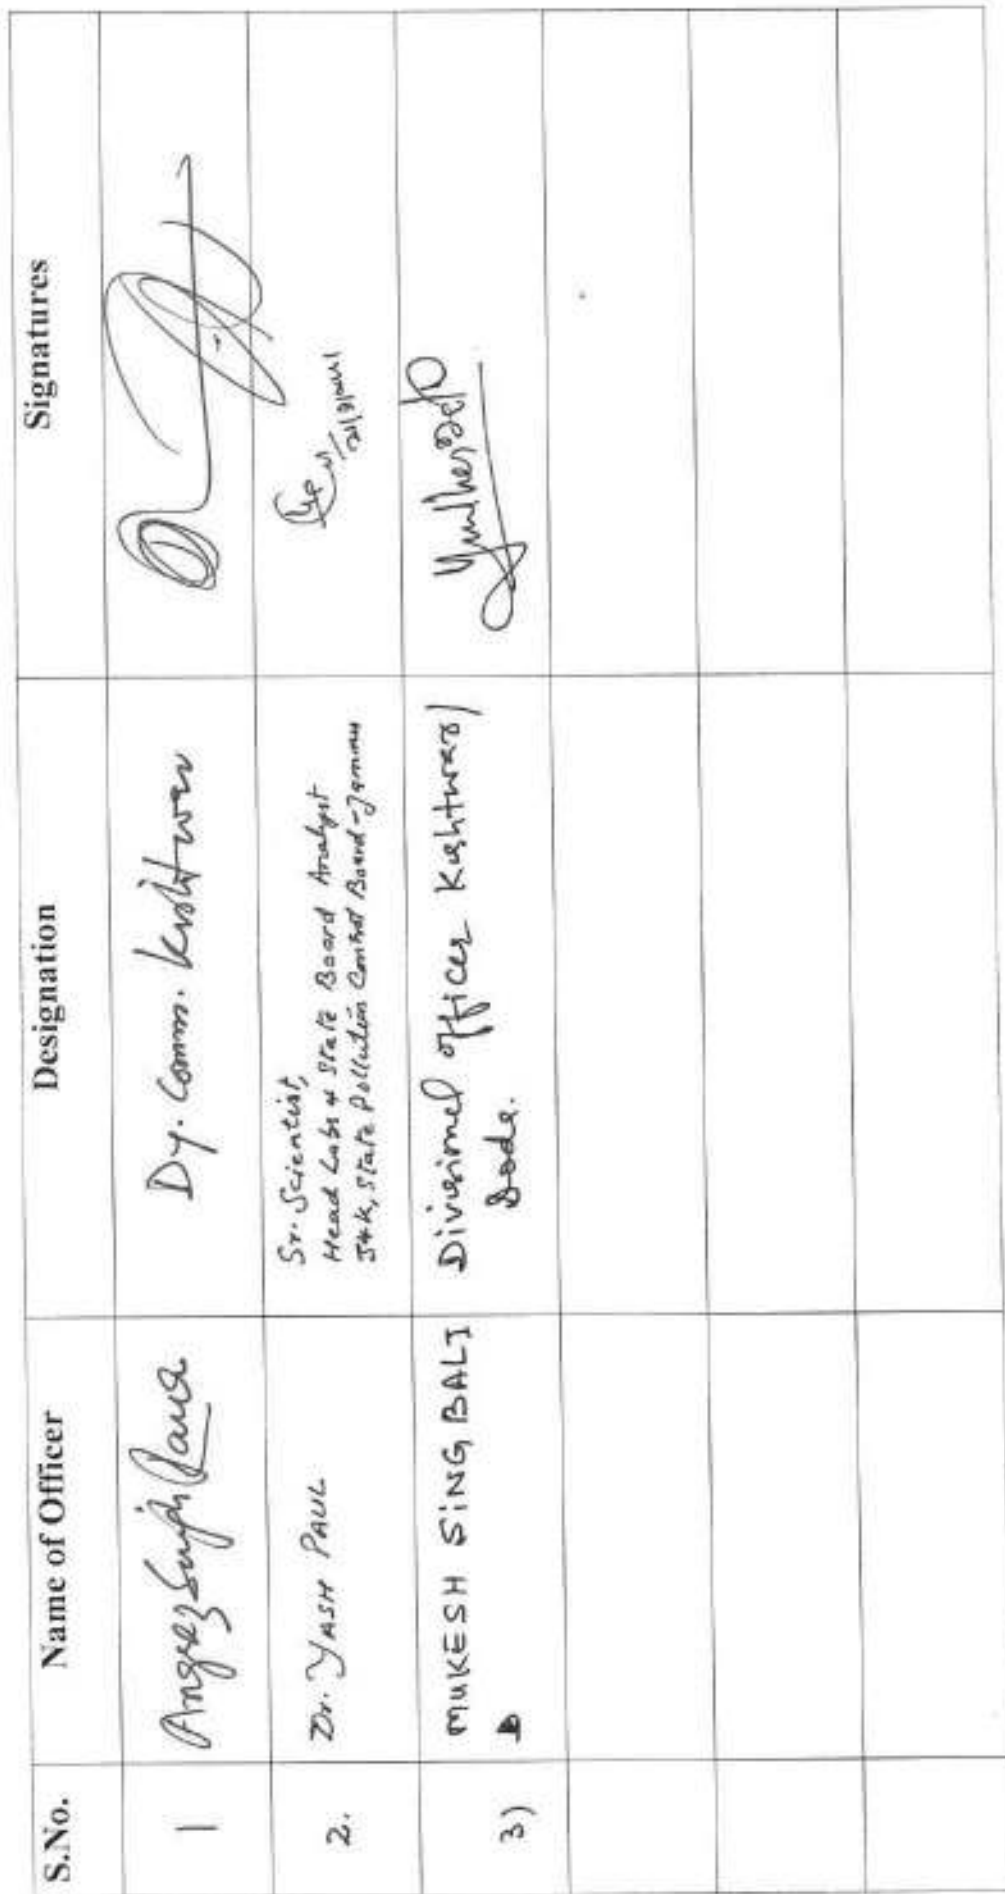 S.No. Name of Officer Designation Signatures
1 Angrez Singh Rana Dy. Comm. Kishtwar
2. Dr. YASH PAUL Sr. Scientist,
Head Labs & State Board Analyst
J&K, State Pollution Control Board-Jammu
3) MUKESH SiNG BALI Divisional officer Kishtwar/
Doda.